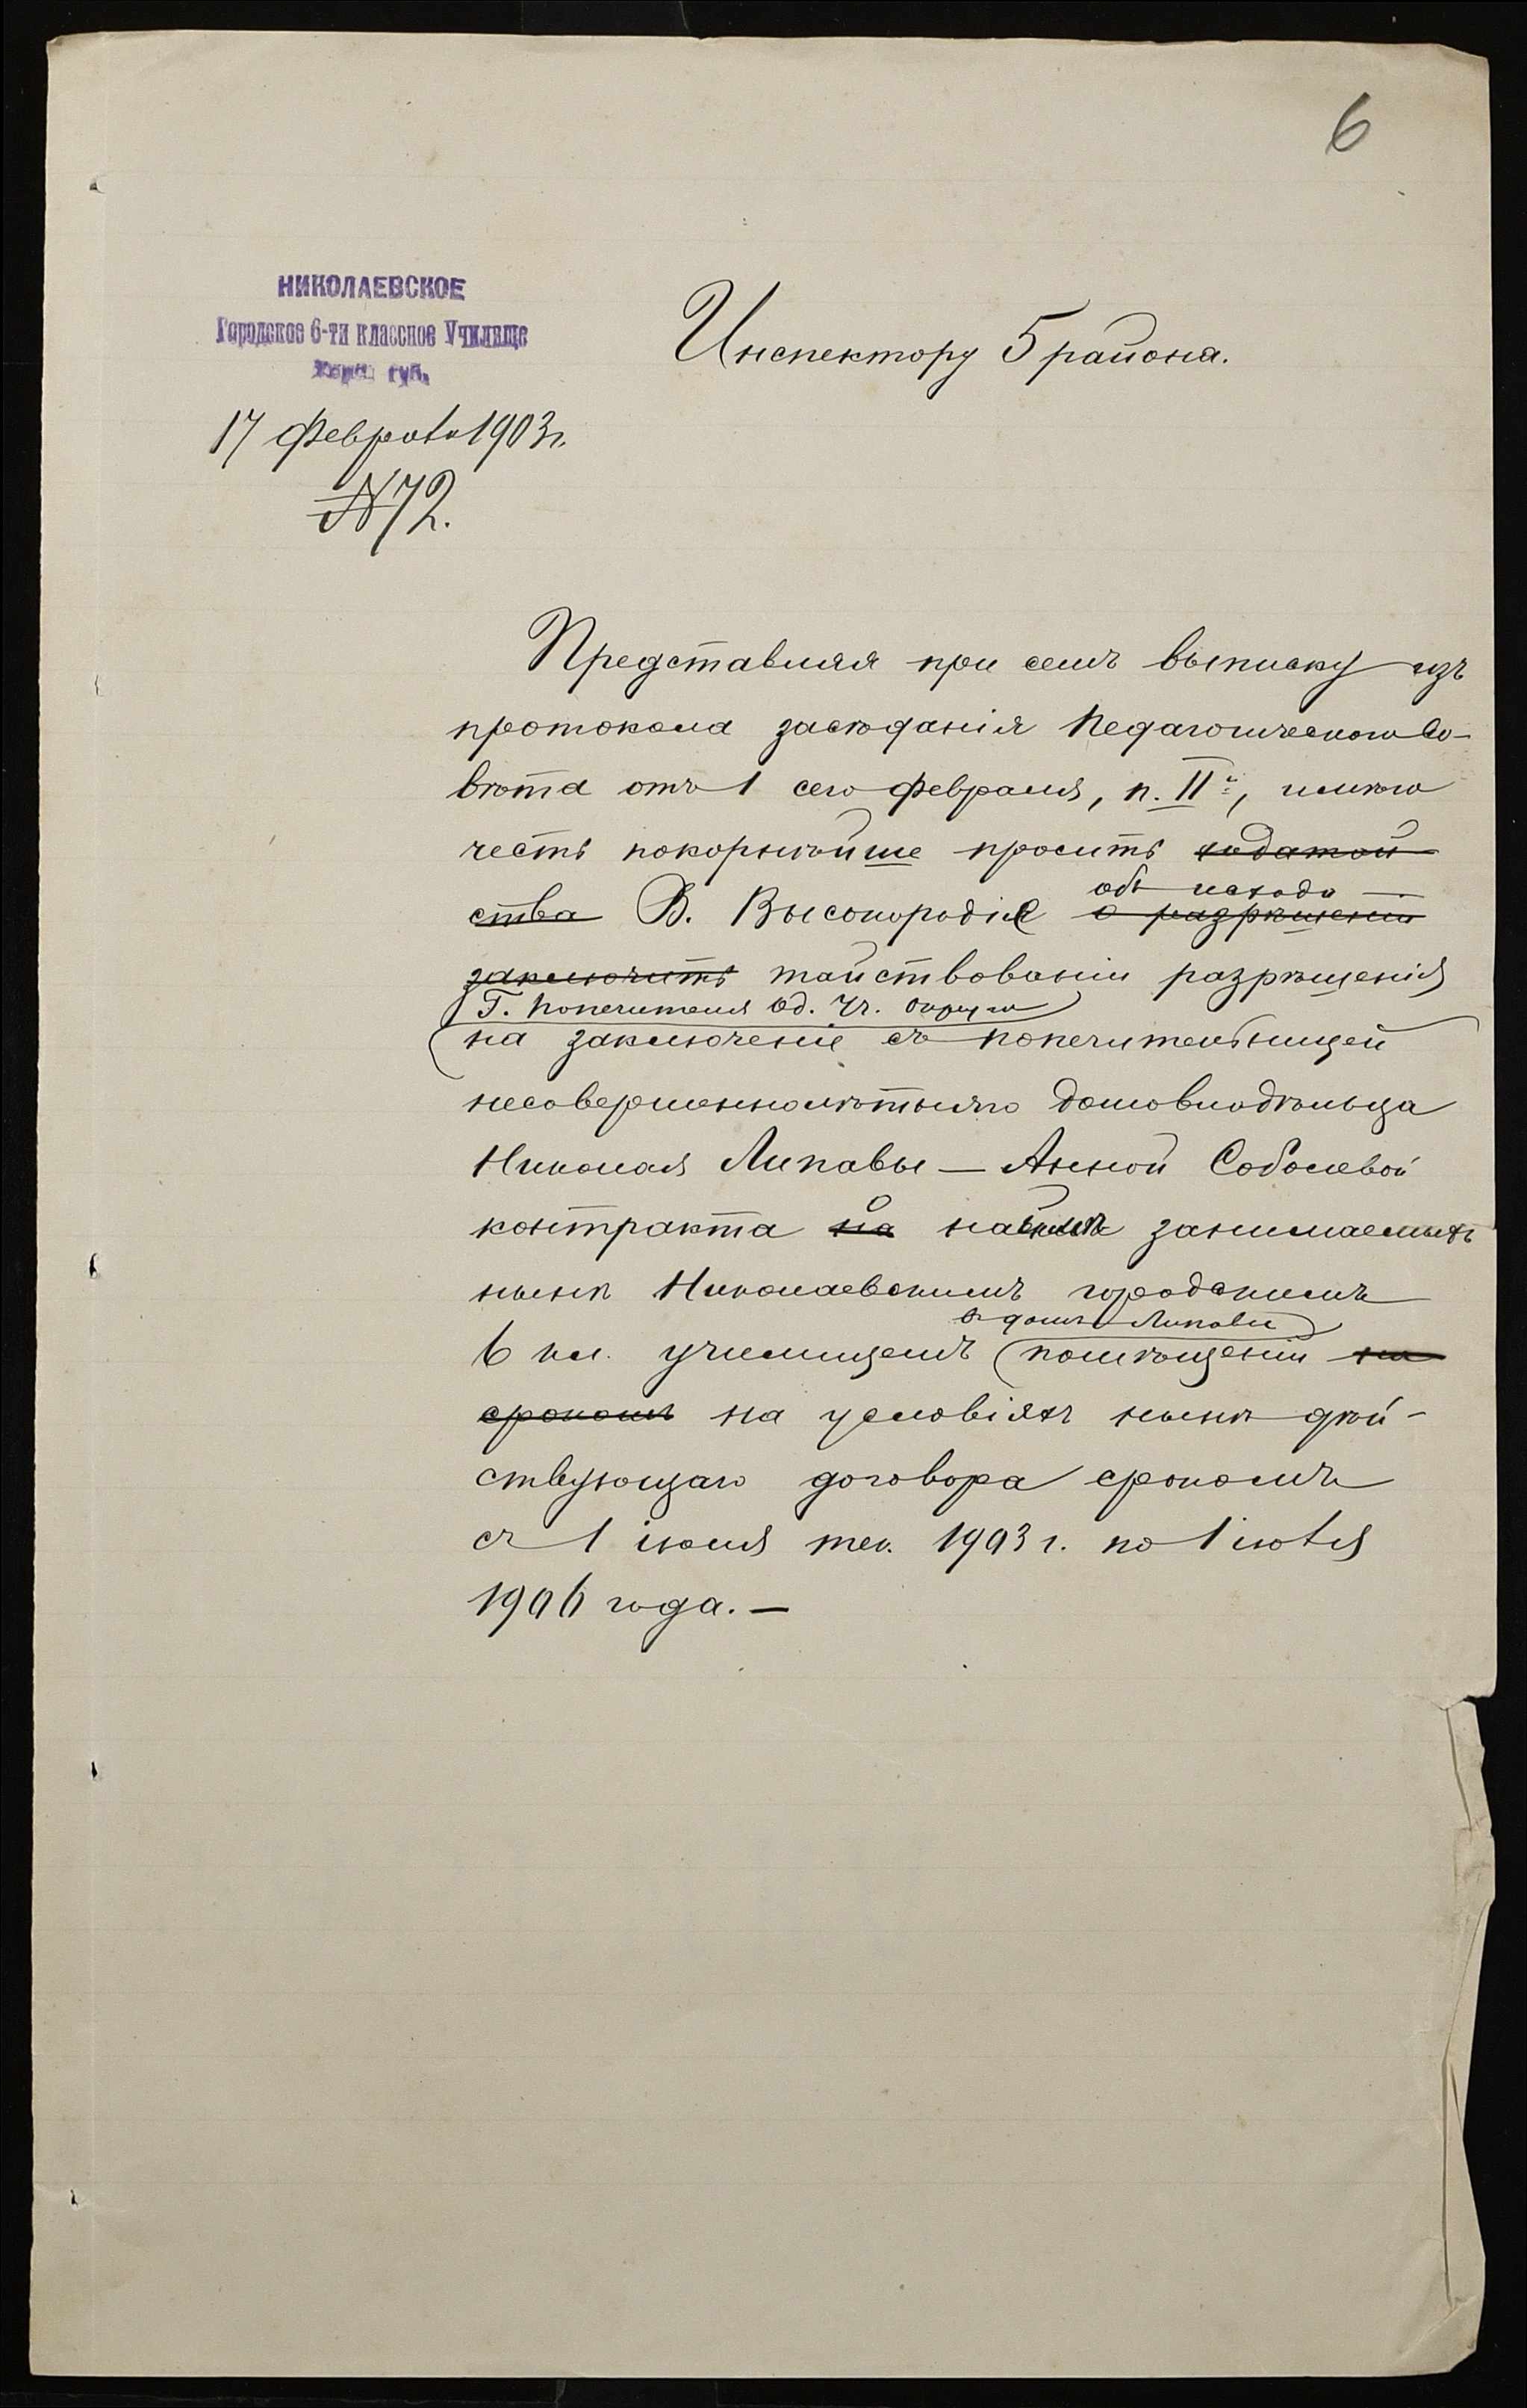 6
НИКОЛАЕВСКОЕ
Городское 6-ти классное Училище
Херсон. губ.
Инспектору 5 района.
17 февраля 1903 г.
№ 72.
Представляя при семъ выписку изъ
протокола засѣданія Педагогическаго Со-
вѣта отъ 1 сего февраля, п. II, имѣю
честь покорнѣйше просить ходатай
ства В. Высокородіе о разрѣшеніи
объ исхода-
заключить тайствованіи разрѣшенія
Г. Попечителя Од. Уч. Округа
на заключеніе съ попечительницей
несовершеннолѣтняго домовладѣльца
Николая Липавы — Анной Соболевой
контракта на занимаемыхъ
нынѣ Николаевскимъ городскимъ
въ домѣ Липавы
6 кл. училищемъ помѣщеній на
срокомъ на условіяхъ нынѣ дѣй-
ствующаго договора срокомъ
съ 1 іюля тек. 1903 г. по 1 іюля
1906 года. —